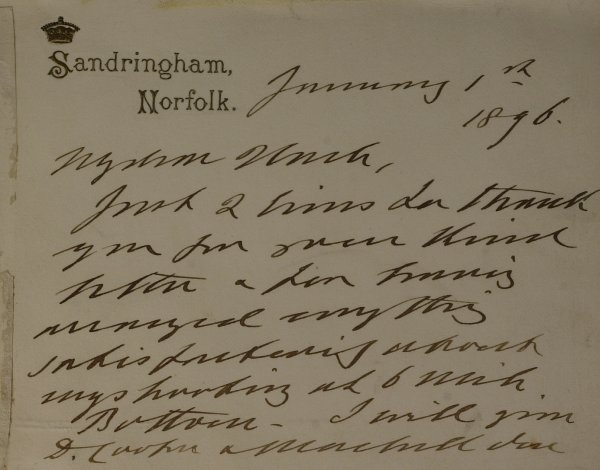 Sandringham,
Norfolk.
January 1st
1896.
My dear Uncle,
Just 2 lines to thank
you for your kind
letter & for having
managed everything
satisfactorily about
my shooting at 6 Mile
Bottom - I will give
D. Cooper &